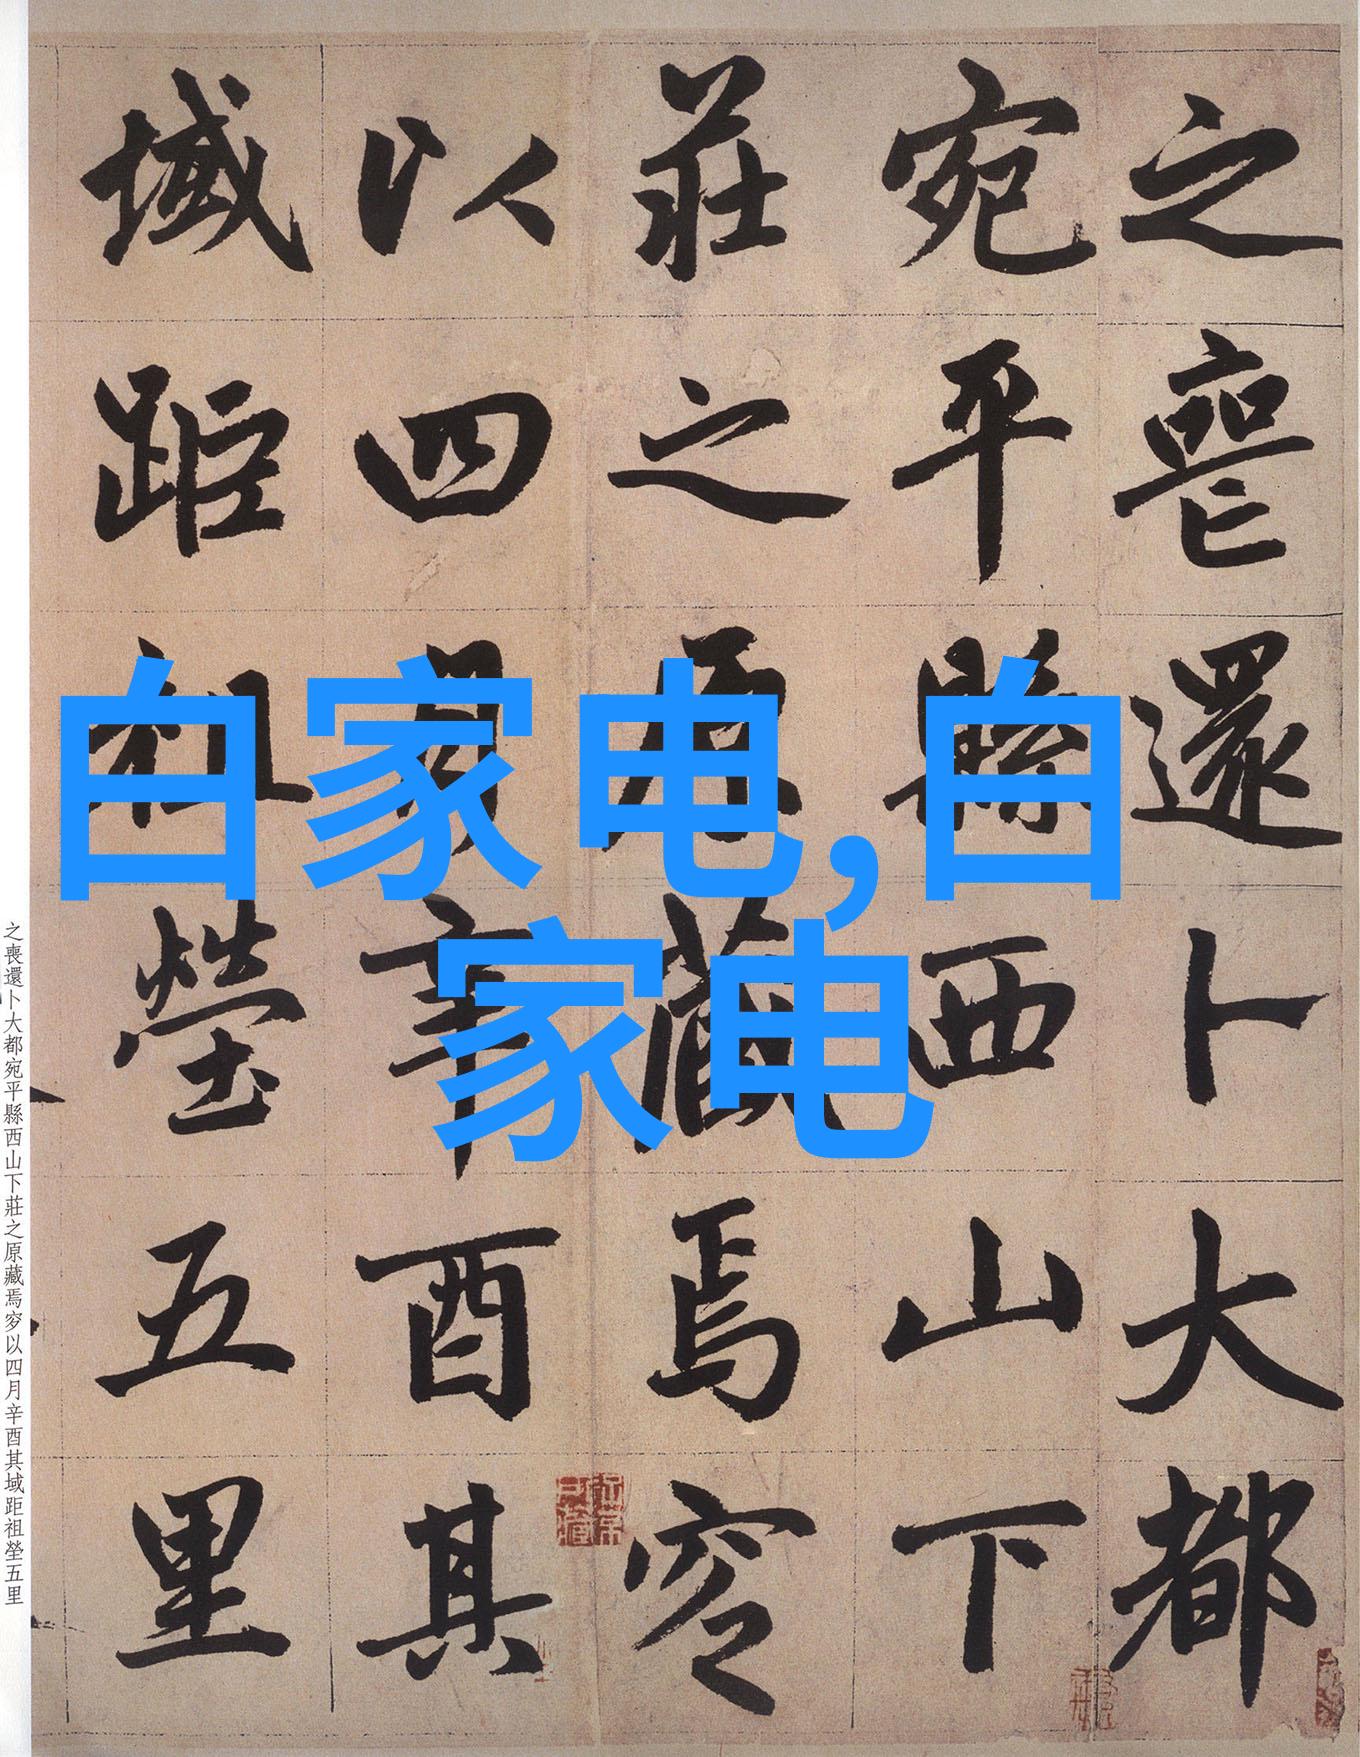 之喪還卜大都
宛平縣西山下
莊之原藏焉窆
以四月辛酉其
域距祖塋五里
白家电,白
家电
之喪還卜大都宛平縣西山下莊之原藏焉穸以四月辛酉其域距祖塋五里